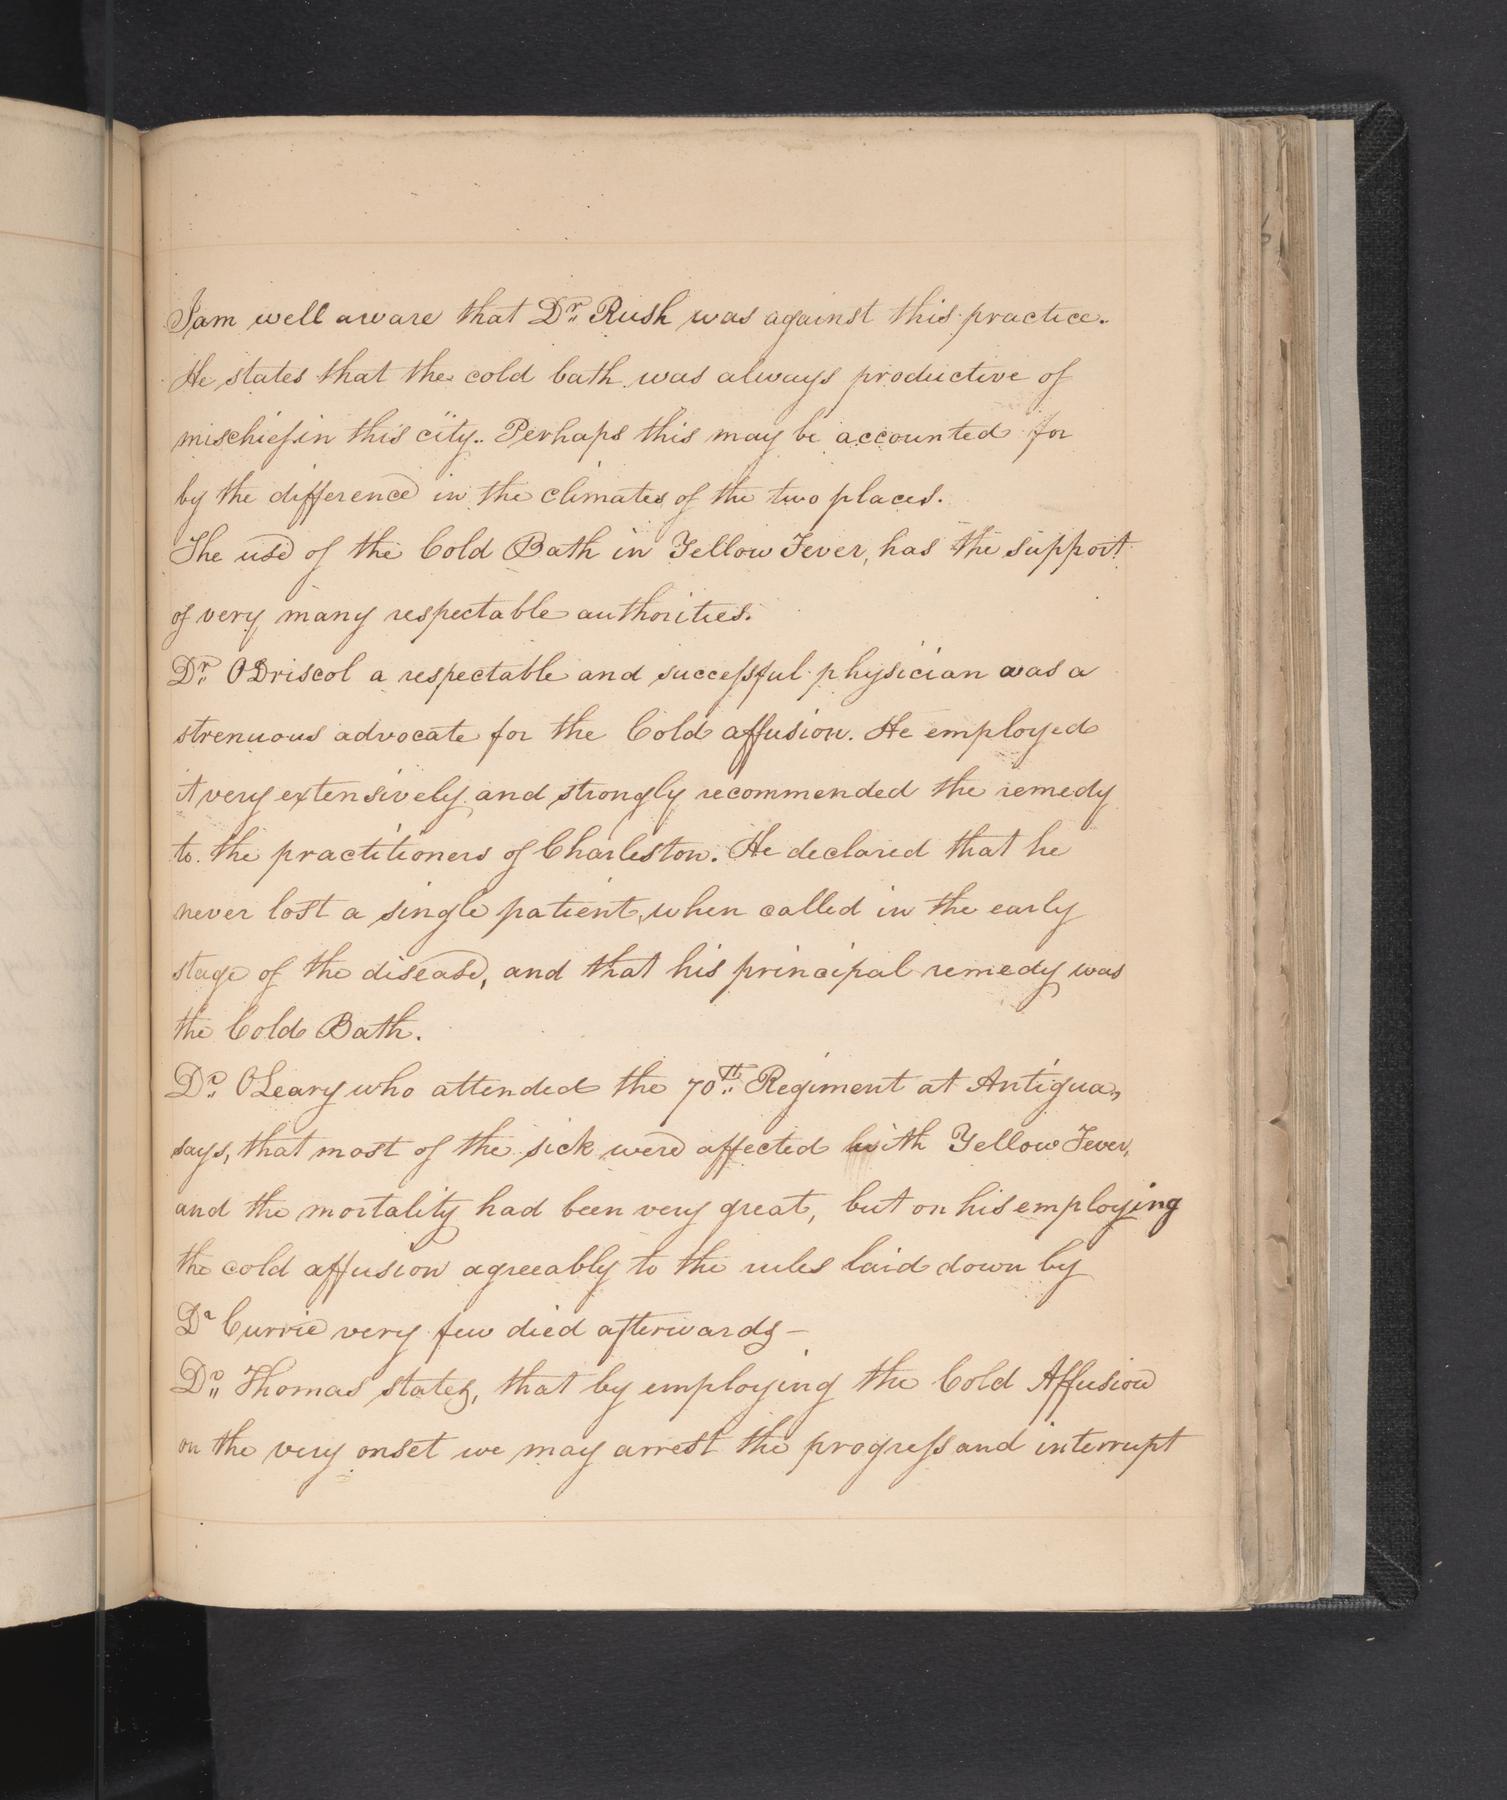 I am well aware that Dr. Rush was against this practice.
He states that the cold bath was always productive of
mischief in this city. Perhaps this may be accounted for
by the difference in the climates of the two places.
The use of the Cold Bath in Yellow Fever, has the support
of very many respectable authorities.
Dr. ODriscol a respectable and successful physician was a
strenuous advocate for the Cold affusion. He employed
it very extensively and strongly recommended the remedy
to the practitioners of Charleston. He declared that he
never lost a single patient, when called in the early
stage of the disease, and that his principal remedy was
the Cold Bath.
Dr. OLeary who attended the 70th Regiment at Antigua,
says, that most of the sick were affected with Yellow Fever,
and the mortality had been very great, but on his employing
the cold affusion agreeably to the rules laid down by
Dr Currie very few died afterwards —
Dr. Thomas states, that by employing the Cold Affusion
on the very onset we may arrest the progress and interrupt